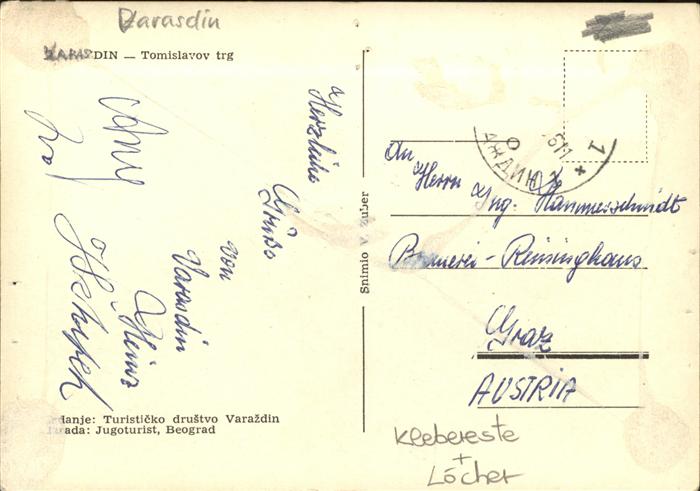 Varasdin
VARASDIN — Tomislavov trg
Herzliche
Grüße
von
Varasdin
Heinz
Snimio V. Zuber
An
Herrn
Ing. Hammerschmidt
Brauerei - Reininghaus
Graz
AUSTRIA
Izdanje: Turističko društvo Varaždin
Izrada: Jugoturist, Beograd
Klebereste
+
Löcher